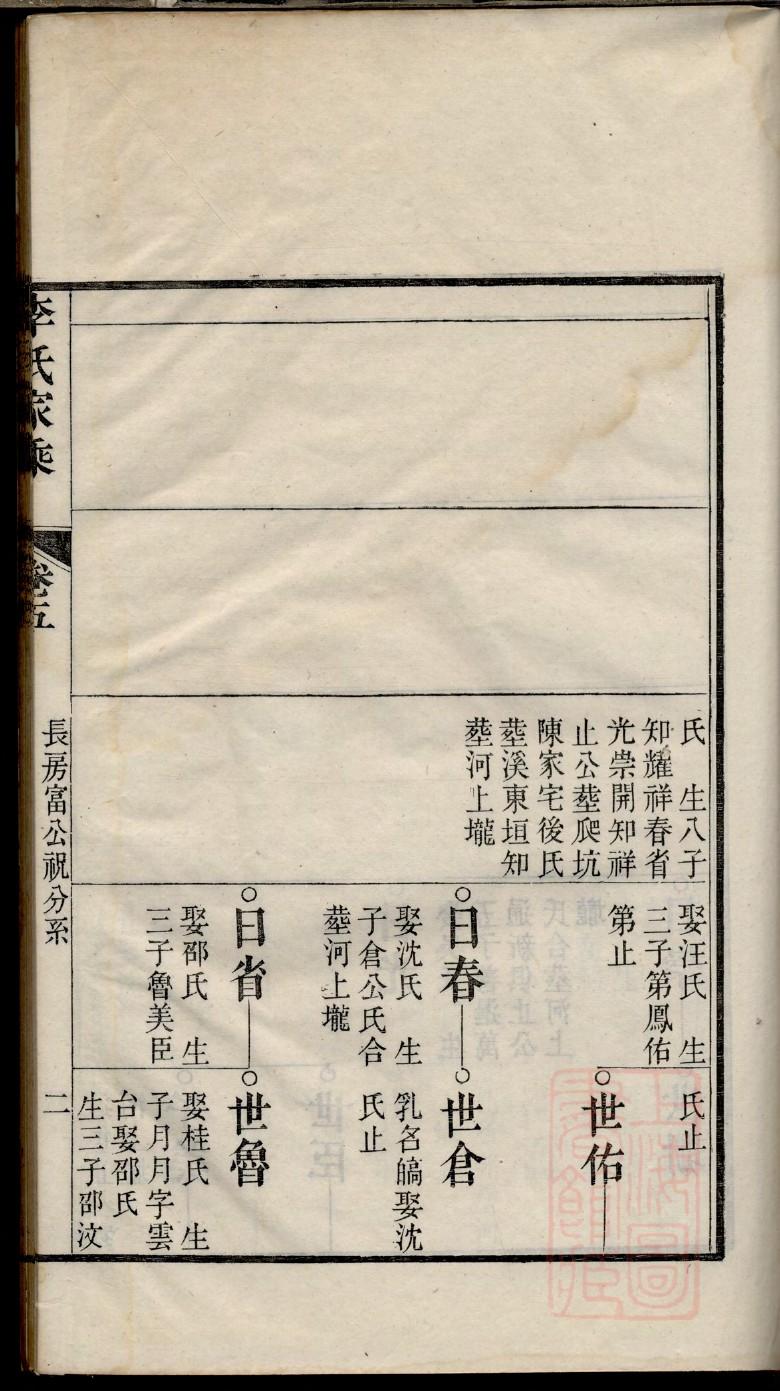 氏　生八子
知耀祥春省
光崇開知祥
止公塟爬坑
陳家宅後氏
塟溪東垣知
塟河上壠
娶汪氏　生
三子第鳳佑
第止
○日春
娶沈氏　生
子倉公氏合
塟河上壠
○日省
娶邵氏　生
三子魯美臣
氏止
○世佑
○世倉
乳名皜娶沈
氏止
○世魯
娶桂氏　生
子月月字雲
台娶邵氏
生三子邵汶
李氏家乘
卷五
長房富公祝分系
二